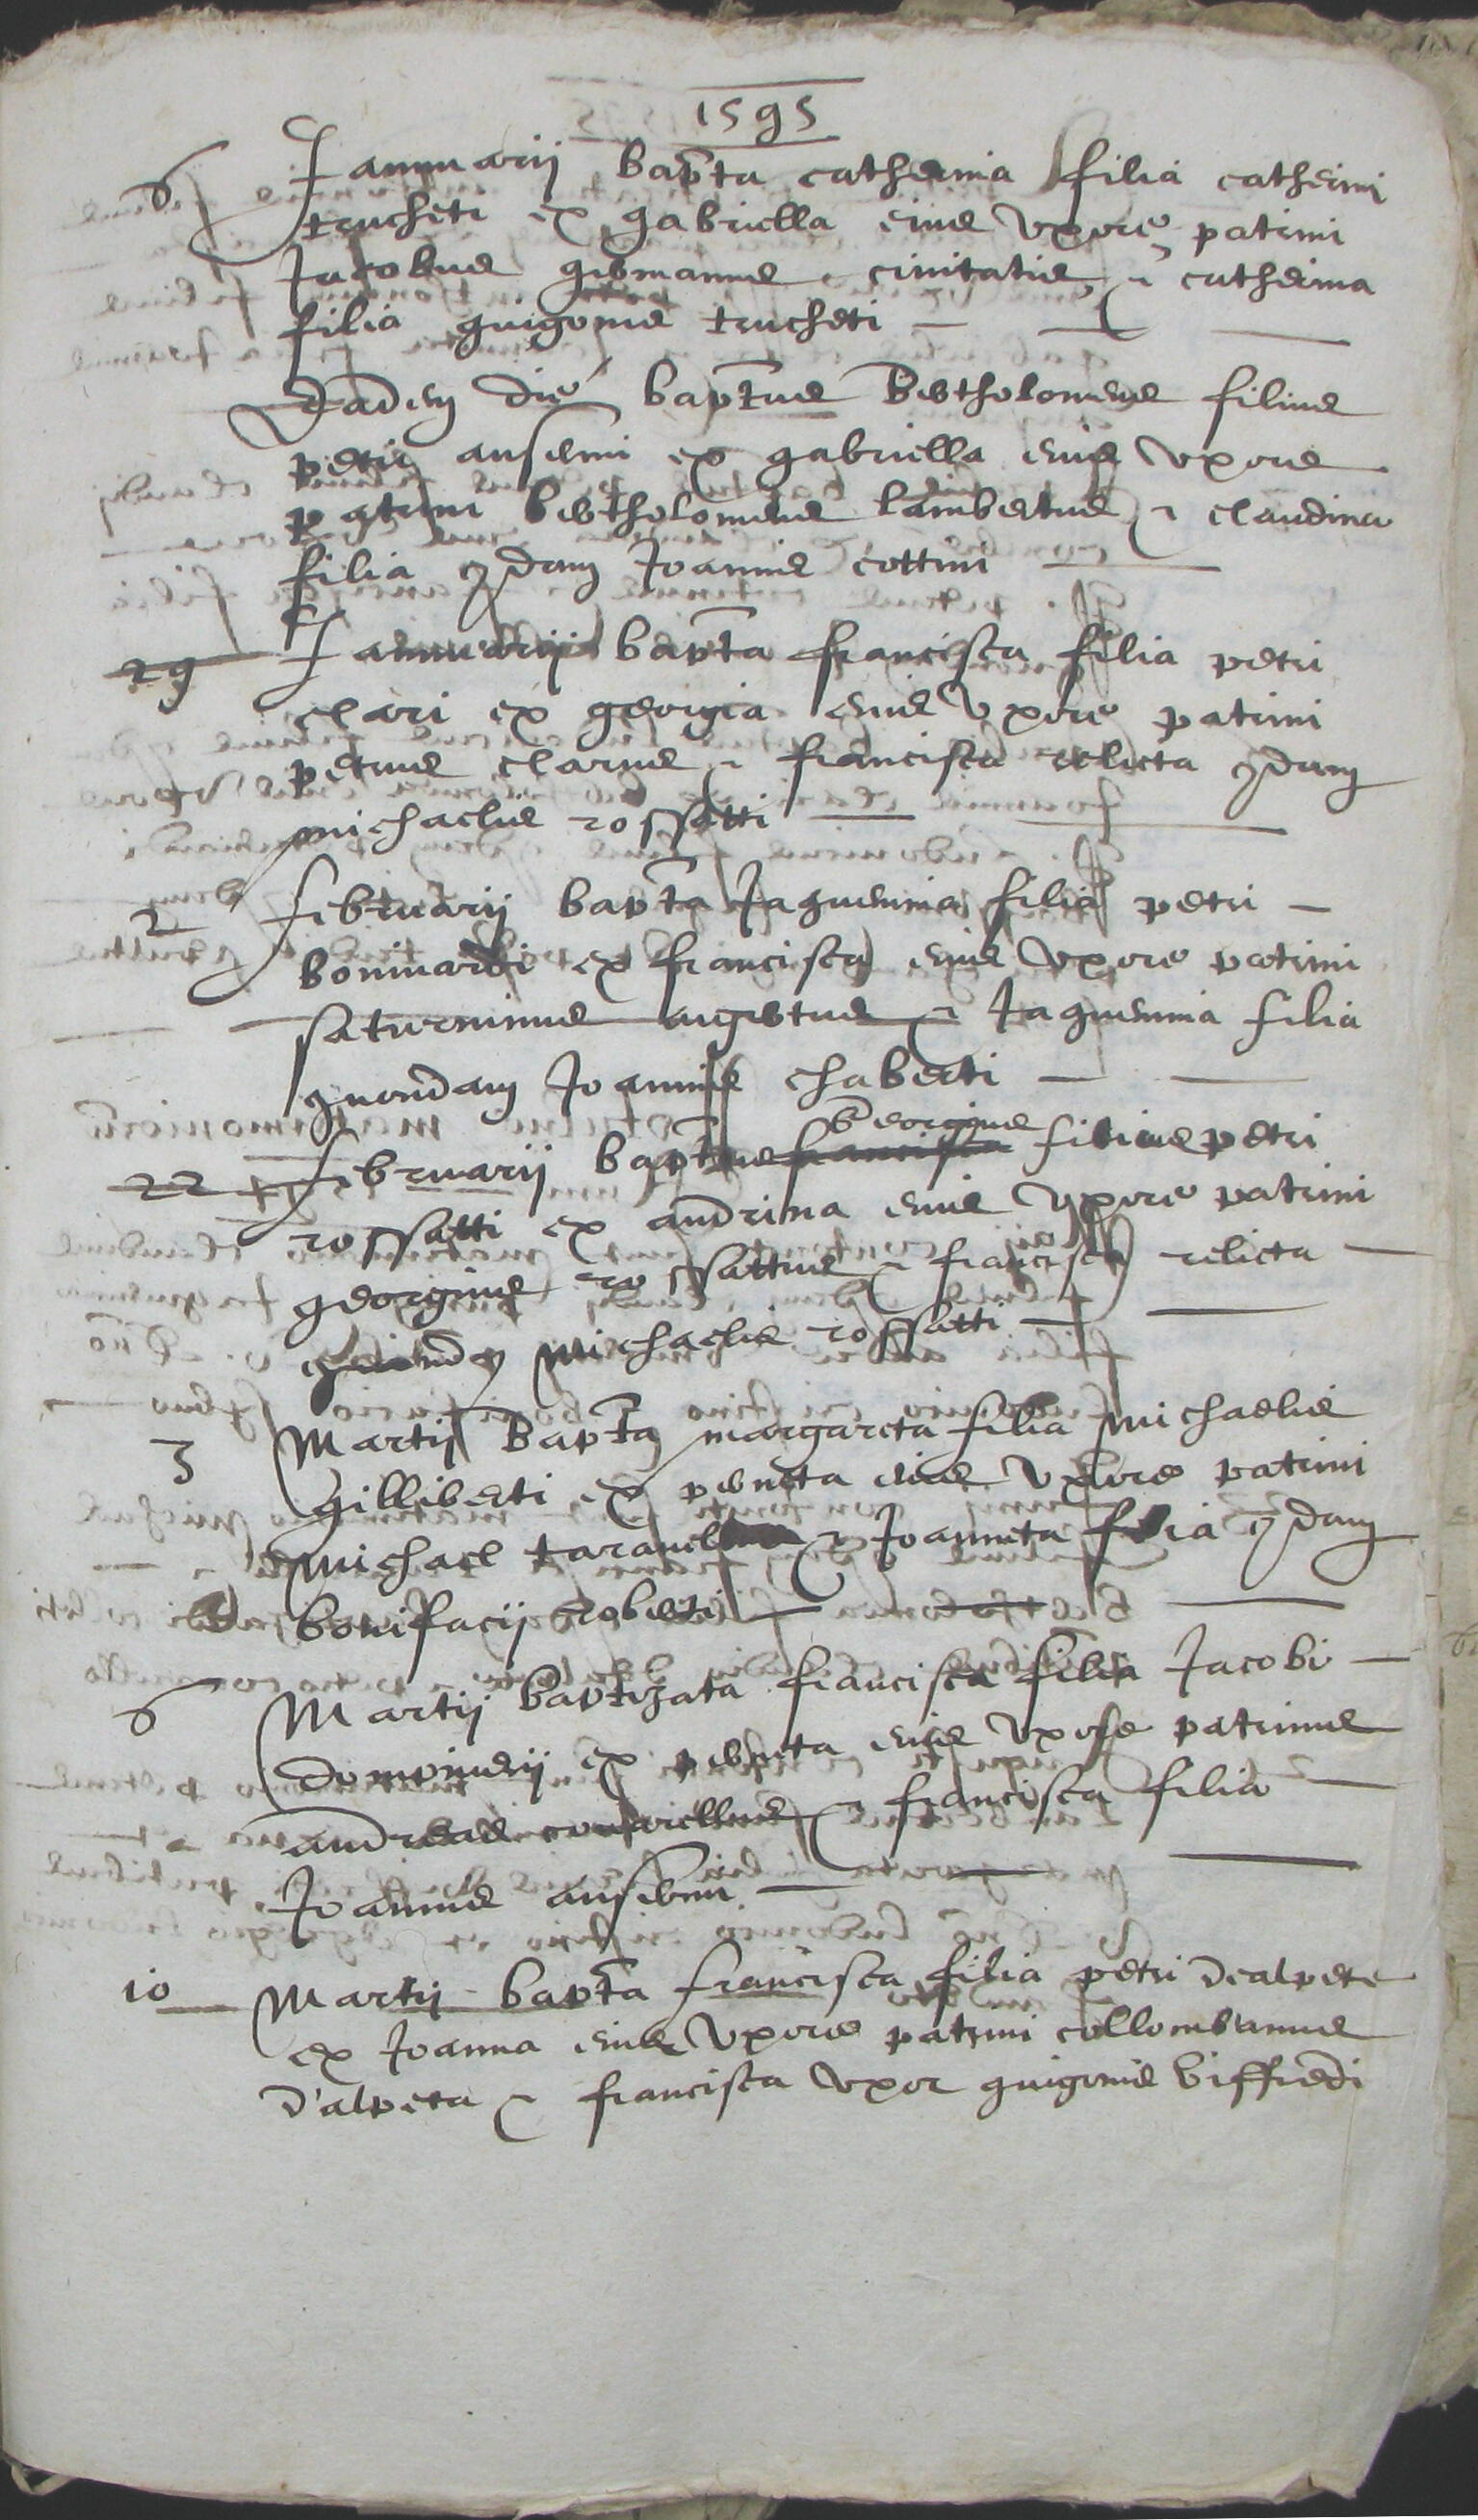 1595
6 Januarij bapta catherina filia catherini
trucheti ex gabriella eius uxore patrini
Jacobus germanus civitatis, et catherina
filia guigonis trucheti
Eadem die baptus Bertholomeus filius
petri anselmi ex gabriella eius uxore
patrini bertholomeus lambertus et claudina
filia qdam Joannis cottini
29 Januarij bapta francisca filia petri
clari ex georgia eius uxore patrini
petrus clarus et francisca relicta qdam
michaelis rossatti
2 februarij bapta Jaquemina filia petri
bonivardi ex francisca eius uxore patrini
saturninus et Jaquemina filia
quondam Joannis chaberti
22 februarij baptus francisca Georgius filius petri
rossatti ex andrina eius uxore patrini
georgius rossattus et francisca relicta
michaelis rossatti
3 Martij bapta margareta filia michaelis
gilliberti ex perneta eius uxore patrini
michael et Joanneta filia qdam
bonifacij roberti
6 Martij baptizata francisca filia Jacobi
domonierij ex perneta eius uxore patrinus
andreas et francisca filia
Joannis anselmi
10 Martij bapta francisca filia petri dealpete
ex Joanna eius uxore patrini collombanus
d'alpeta et francisca uxor guigonis biffredi